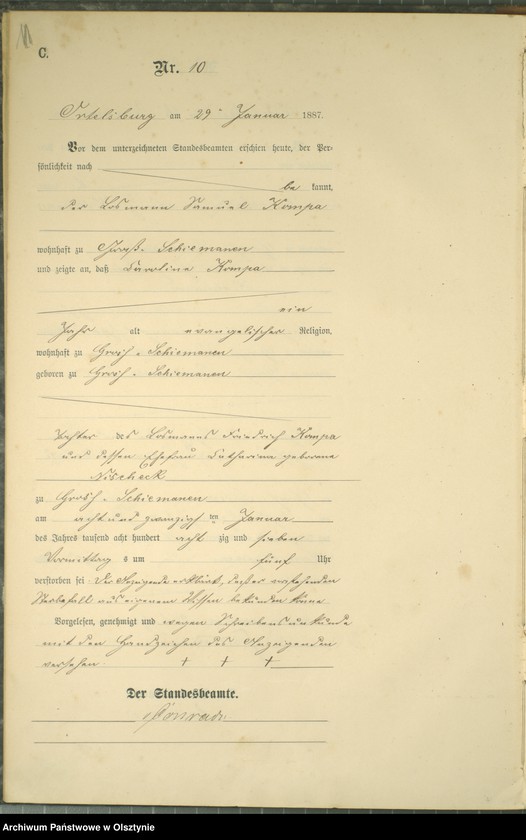 11
C.
Nr. 10
Ortelsburg am 29 Januar 1887.
Vor dem unterzeichneten Standesbeamten erschien heute, der Per-
sönlichkeit nach
be kannt,
der Losmann Samuel Kompa
wohnhaft zu Groß-Schiemanen
und zeigte an, daß Caroline Kompa
ein
Jahr alt evangelischer Religion,
wohnhaft zu Groß-Schiemanen
geboren zu Groß-Schiemanen
Tochter des Losmanns Friedrich Kompa
und dessen Ehefrau Catharina geborene
Nischeck
zu Groß-Schiemanen
am acht und zwanzigsten Januar
des Jahres tausend acht hundert acht zig und sieben
Vormittag s um fünf Uhr
verstorben sei. Der Anzeigende erklärt, daß er vorstehenden
Sterbefall aus eigenem Wissen bekunden könne
Vorgelesen, genehmigt und wegen Schreibensunkunde
mit den Handzeichen des Anzeigenden
versehen. † † †
Der Standesbeamte.
Archiwum Państwowe w Olsztynie